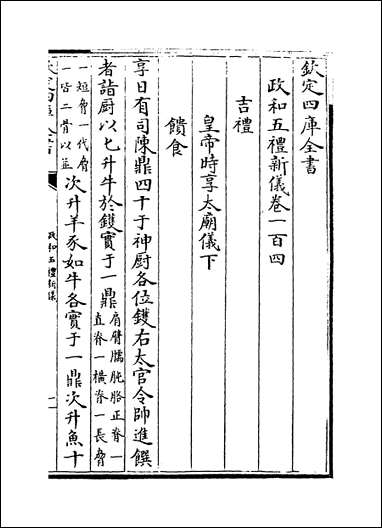 欽定四庫全書
政和五禮新儀卷一百四
吉禮
皇帝時享太廟儀下
饋食
享日有司陳鼎四十于神厨各位鑊右太官令帥進饌
者詣厨以匕升牛於鑊實于一鼎肩臂臑肫胳正脊一直脊一橫脊一長脅
一短脅一代脅一皆二骨以並次升羊豕如牛各實于一鼎次升魚十
政和五禮新儀